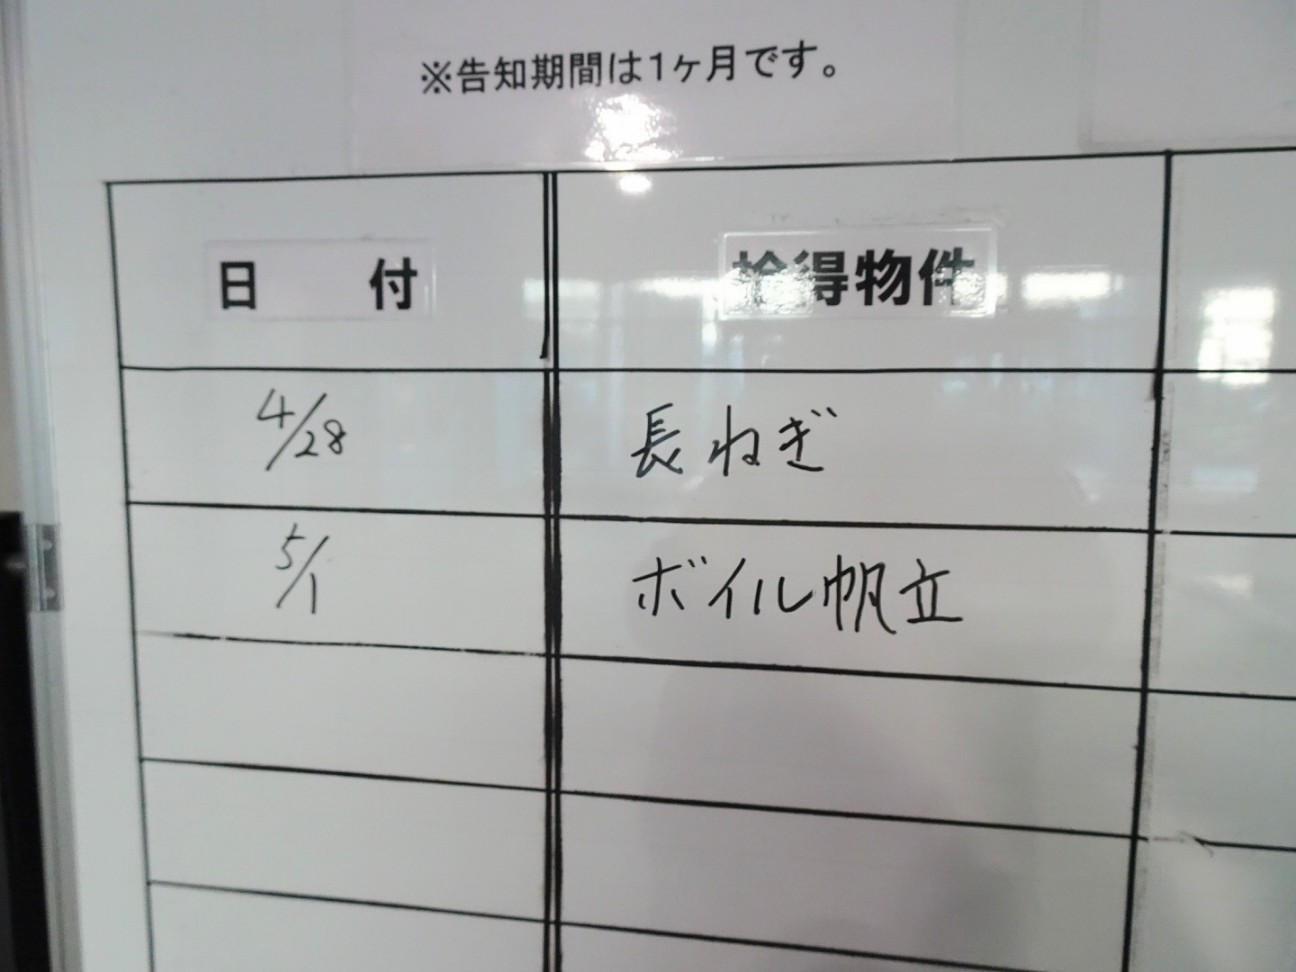 ※告知期間は1ヶ月です。
日 付
拾得物件
4/28
長ねぎ
5/1
ボイル帆立